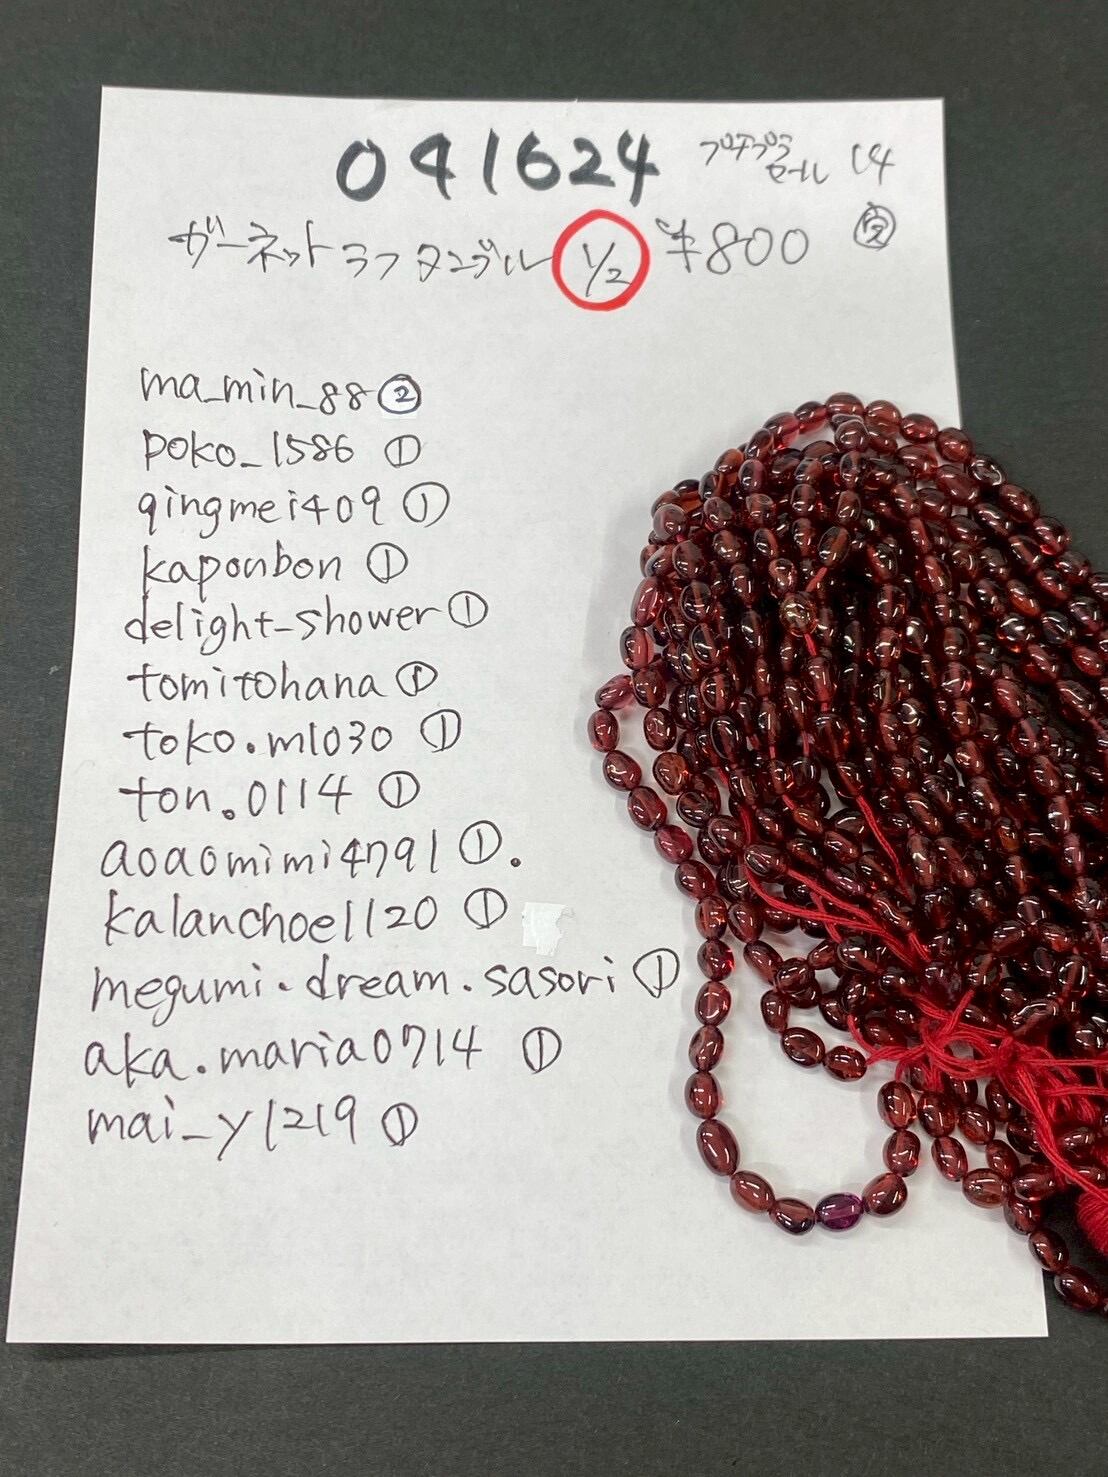 091624 プチプラセール 14
ガーネットラフタンブル 1/2 ¥800
ma_min_88 ②
poko_1586 ①
qingmei409 ①
kaponbon ①
delight-shower ①
tomitohana ①
toko.m1030 ①
ton.0114 ①
aoaomimi4791 ①.
kalanchoe1120 ①
megumi.dream.sasori ①
aka.maria0714 ①
mai_y1219 ①